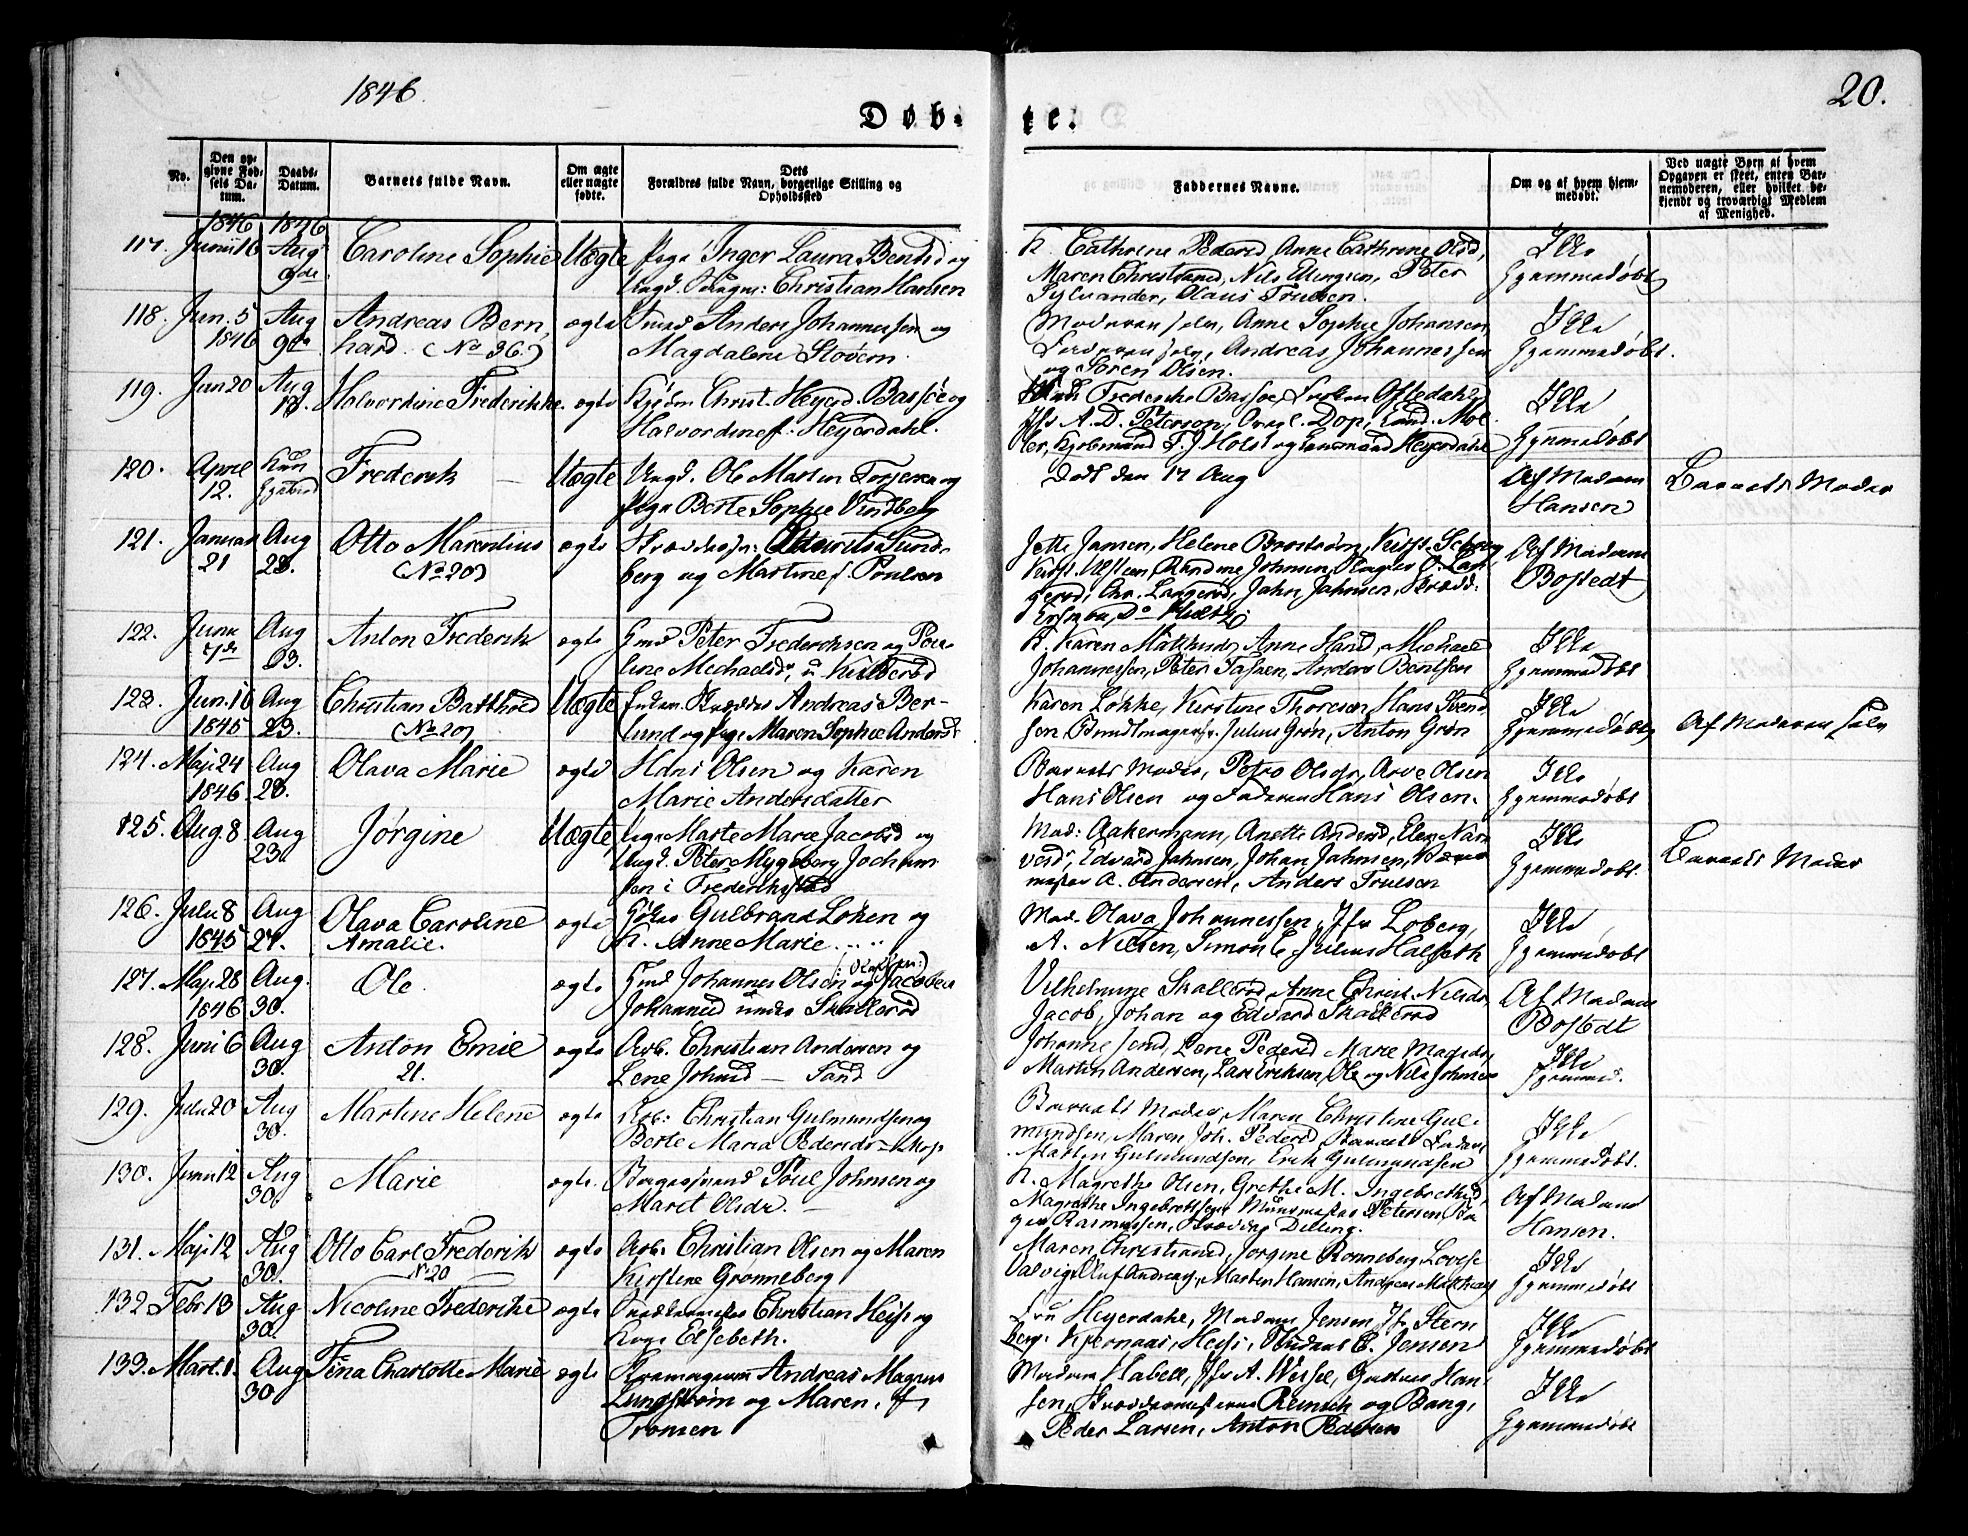 1846.
20.
Døbte.
No.
Den opgivne Fødsels Datum.
Daabs-Datum.
Barnets fulde Navn.
Om ægte eller uægte fødte.
Dets Forældres fulde Navn, borgerlige Stilling og Opholdssted
Faddernes Navne.
Om og af hvem hjemmedøbt.
Ved uægte Børn af hvem Opgaven er skeet, enten Barnemoderen, eller hvilket bekjendt og troværdigt Medlem af Menighed.
1846 1846
117. Junii 16 Aug 9de Caroline Sophie Uægte Pige Inger Laura Bentsd og
Ungk. Christian Hansen
K. Cathrine Pedersd, Anne Cathrine Olsd,
Maren Christiansd, Nils Ellingsen, Peter
Sylvander, Olaus Truelsen.
Ikke
hjemmedøbt
118. Jun. 5 1846 Aug 9de Andreas Bern
hard. (No 36.) ægte Smed Anders Johannessen og
Magdalene Støvern.
Moderen selv, Anne Sophie Johansen,
Faderen selv, Andreas Johannessen
og Søren Olsen.
Ikke
hjemmedøbt.
119. Jun 20 Aug 13. Halvordine Frederikke. ægte Christ. Heyerd. Bassøe og
Halvordine f. Heyerdahl.
Frederikke Bassøe, Oftedahl,
Jfr A. D. Peterson, Dop, Cand. Møl
ler, Kjøbmand F. J. Holst og Heyerdahl
Ikke
hjemmedøbt
120. April 12. Kun hjemmed Frederik — Uægte Ungk. Ole Martin Torjersen og
Pige Berte Sophie Lindberg
Død den 17 Aug
Af Madam
Hansen
Barnets Moder
121. Januar 21 Aug 23. Otto Marentius
(No 20) ægte Lund-
berg og Martine f. Poulsen
Jette Jansen, Helene Brostrøm,
Chr. Langerød, John Johnsen,
Af Madam
Bostedt
122. Juni 7de Aug 23. Anton Frederik ægte Gmd Peter Fredericksen og Pou
line Michaelsdr
K. Karen Anne Hansd, Michael
Johannessen, Peter Anders Bentsen
Ikke
hjemmedøbt
123. Jun. 16 1845 Aug 23. Christian Barthold
(No 20) Uægte Skrædder Andreas Ber-
lund og Pige Maren Sophie Andersd
Karen Løkke, Kirstine Thoresen, Hans Svend
sen, Bundtmagersv. Julius Grøn, Anton Grøn
Ikke
hjemmedøbt
Af Moderen selv
124. Maji 24 1846. Aug 23. Olava Marie ægte Hans Olsen og Karen
Marie Andersdatter
Barnets Moder, Petro Olsen, Arve Olsen
Hans Olsen og Faderen Hans Olsen.
Ikke
hjemmedøbt
125. Aug. 8 Aug 23 Jørgine Uægte Pige Marte Marie Jacobsd og
Ungk. Peter Mygeberg Jochum
sen i Frederikstad
Mad: Aakermann, Anette Andersd, Elen
Edvard Jahnsen, Johan Jahnsen,
A. Andersen, Anders Truelsen
Ikke
hjemmedøbt.
Barnets Moder
126. Julii 8 1845 Aug 27. Olava Caroline
Amalie. ægte Gulbrand Løken og
K. Anne Marie . . . .
Mad. Olava Johannessen, Jfr Loberg,
A. Nilsen, Simon Julius Halseth
Ikke
hjemmedøbt
127. Maji 28 1846 Aug. 30. Ole ægte Gmd Johannes Olsen og Jacobea
Johannesd under Skallerød
Vilhelmine Skallerød, Anne Christ. Nilsdr,
Jacob, Johan og Edvard Skallerød
Af Madam
Bostedt
128. Juni 6 Aug 30. Anton Emil
21. ægte Arb. Christian Andersen og
Lene Johnsd — Sand
Johanne Lene Pedersd, Marie Madsdr,
Martin Andersen, Lars Eriksen, Ole og Nils Johnsen
Ikke
hjemmed.
129. Julii 20 Aug 30. Martine Helene ægte Arb: Christian Gulmundsen og
Berte Maria Pedersdr — Moss
Barnets Moder, Maren Christine Gul-
mundsen, Maren Joh. Pedersd, Barnets Fader,
Martin Gulmundsen, Erik Gulmundsen
Ikke
hjemmedøbt.
130. Junii 12 Aug 30. Marie ægte. Poul Johnsen og
Marit Olsdr. —
K. Magrethe Olsen, Grethe M. Ingebrethsd,
Magrethe Ingebrethsen, Muurmester Petersen,
Rasmussen, Skrædder Delling.
Af Madam
Hansen.
131. Maji 12 Aug 30. Otto Carl Frederik
No 20 ægte Arb. Christian Olsen og Maren
Kirstine Grønneberg
Maren Christiansd, Jørgine Rønneberg, Lovise
Oluf Andreas, Martin Hansen, Andreas
Ikke
hjemmedøbt
132 Febr 13 Aug 30. Nicoline Frederikke ægte Christian Heiss og
Kone Elsebeth.
Fru Heyerdahl, Madam Jensen, Jfr Stern
berg, Kjernaas, Heiss, E. Jensen
Ikke
hjemmedøbt
133. Mart. 1. Aug 30 Fina Charlotte Marie ægte Andreas Magnus
Lundstrøm og Maren, f.
Tronsen
Madam Habell, Jfr A. Wessel, Gustav Han
sen, Skræddermesterne Remick og Bang,
Peder Larsen, Anton Pedersen
Ikke
hjemmedøbt